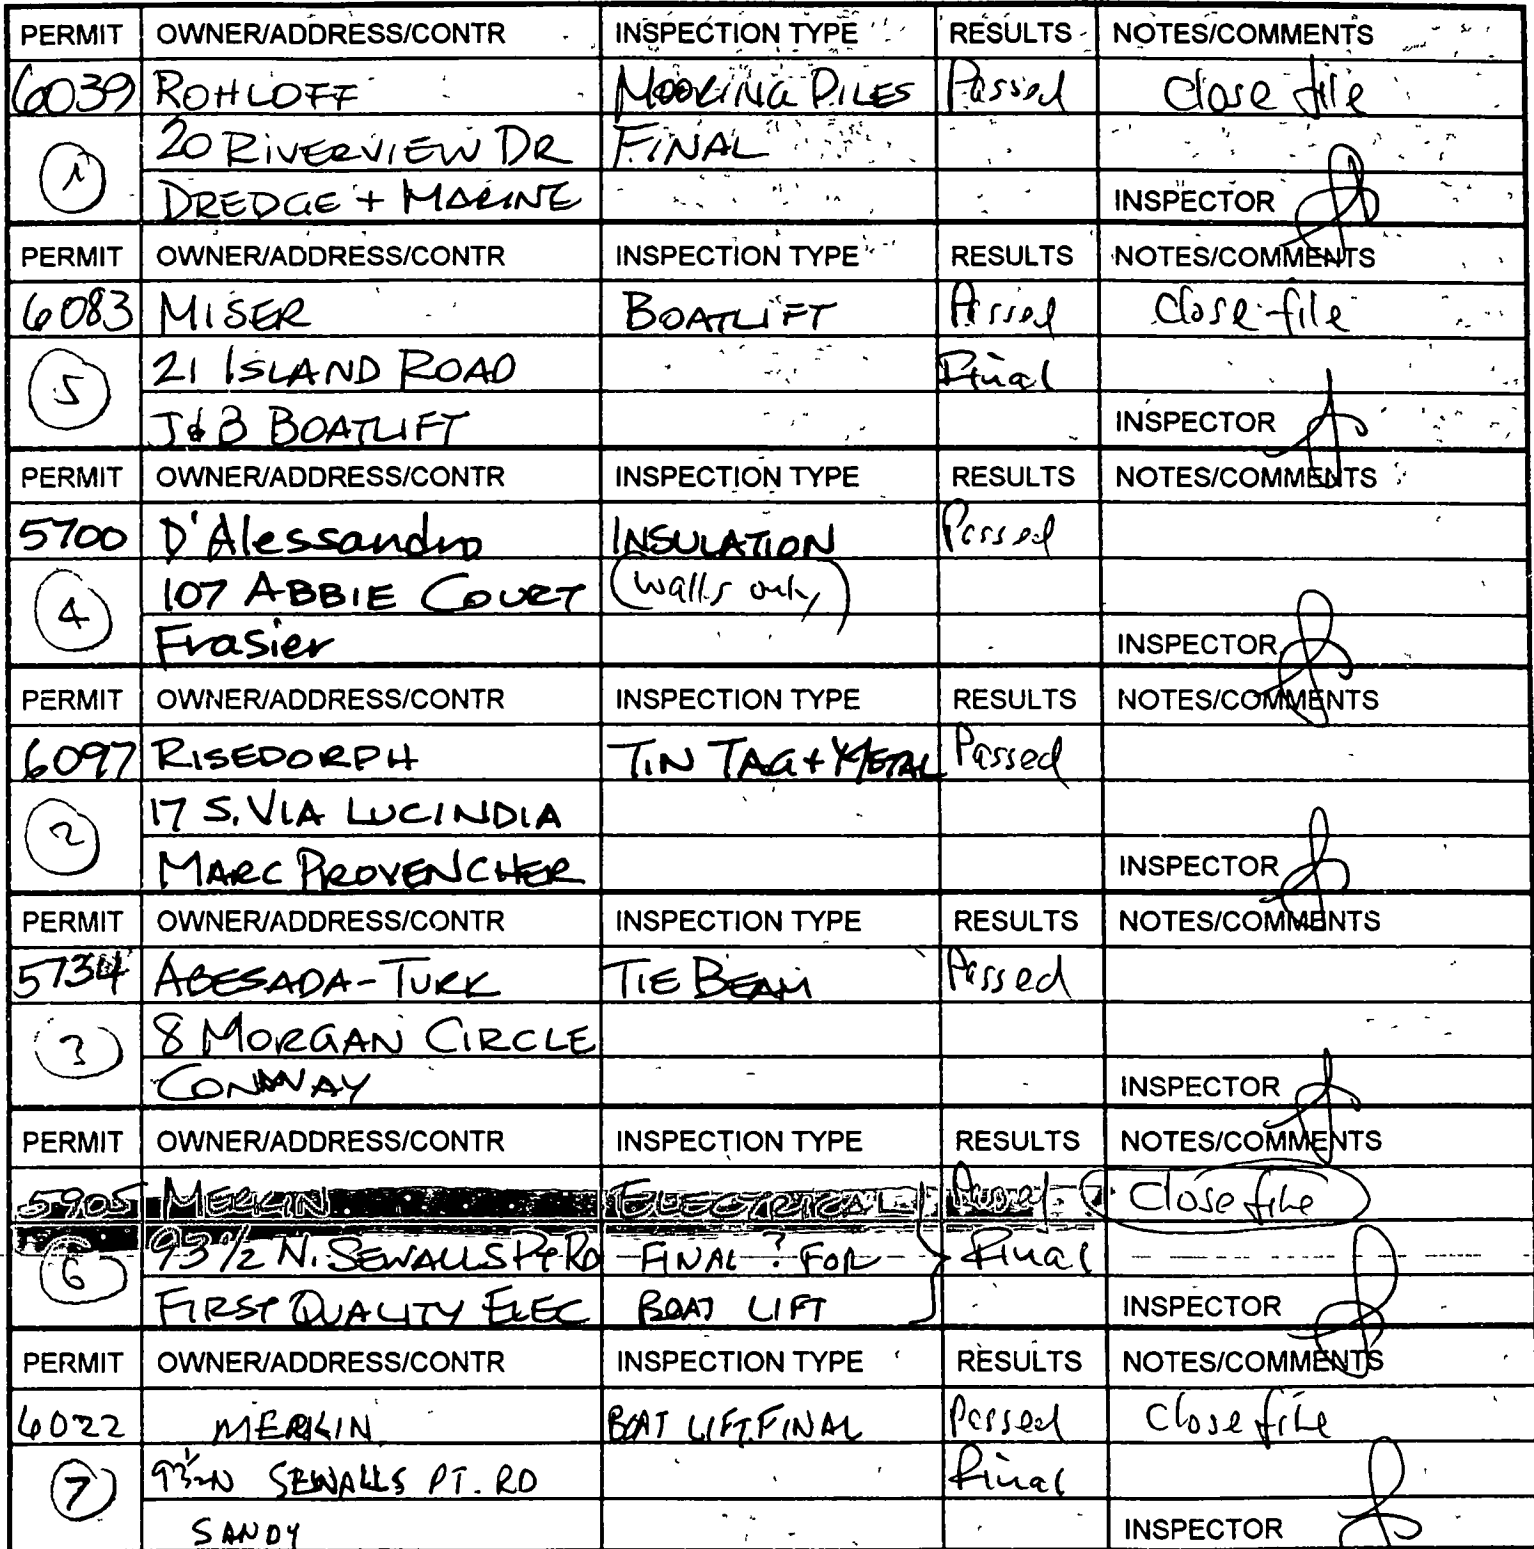 PERMIT OWNER/ADDRESS/CONTR INSPECTION TYPE RESULTS NOTES/COMMENTS
6039 ROHLOFF MOORING PILES Passed Close file
1 20 RIVERVIEW DR FINAL
DREDGE + MARINE INSPECTOR
PERMIT OWNER/ADDRESS/CONTR INSPECTION TYPE RESULTS NOTES/COMMENTS
6083 MISER BOATLIFT Passed Close file
5 21 ISLAND ROAD Final
J&B BOATLIFT INSPECTOR
PERMIT OWNER/ADDRESS/CONTR INSPECTION TYPE RESULTS NOTES/COMMENTS
5700 D'Alessandro INSULATION Passed
4 107 ABBIE COURT (walls only)
Frasier INSPECTOR
PERMIT OWNER/ADDRESS/CONTR INSPECTION TYPE RESULTS NOTES/COMMENTS
6097 RISEDORPH TIN TAG + METAL Passed
2 17 S. VIA LUCINDIA
MARC PROVENCHER INSPECTOR
PERMIT OWNER/ADDRESS/CONTR INSPECTION TYPE RESULTS NOTES/COMMENTS
5734 ABESADA-TURK TIE BEAM Passed
3 8 MORGAN CIRCLE
CONWAY INSPECTOR
PERMIT OWNER/ADDRESS/CONTR INSPECTION TYPE RESULTS NOTES/COMMENTS
5905 MERKIN ELECTRICAL Passed Close file
6 93 1/2 N. SEWALLS PT RD FINAL ? FOR Final
FIRST QUALITY ELEC BOAT LIFT INSPECTOR
PERMIT OWNER/ADDRESS/CONTR INSPECTION TYPE RESULTS NOTES/COMMENTS
6022 MERKIN BOAT LIFT FINAL Passed Close file
7 93 1/2 N SEWALLS PT. RD Final
SANDY INSPECTOR